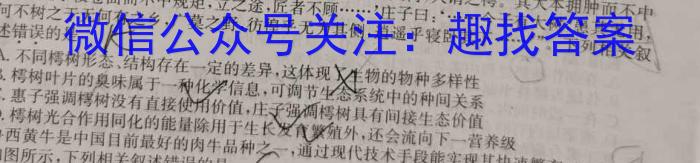 何不树之
立之途,匠者不顾……庄子曰:
微信公众号关注:趣找答案
述错误的
A. 不同樗树形态、结构存在一定的差异,这体现了生物的物种多样性
B. 樗树叶片的臭味属于一种化学信息,可调节生态系统中的种间关系
C. 惠子强调樗树没有直接使用价值,庄子强调樗树具有间接生态价值
D. 樗树光合作用同化的能量除用于生长发育繁殖外,还会流向下一营养级
西黄牛是中国目前最好的肉牛品种之一,通过现代技术手段能实现其快速繁
如图所示,下列相关叙述错误的是